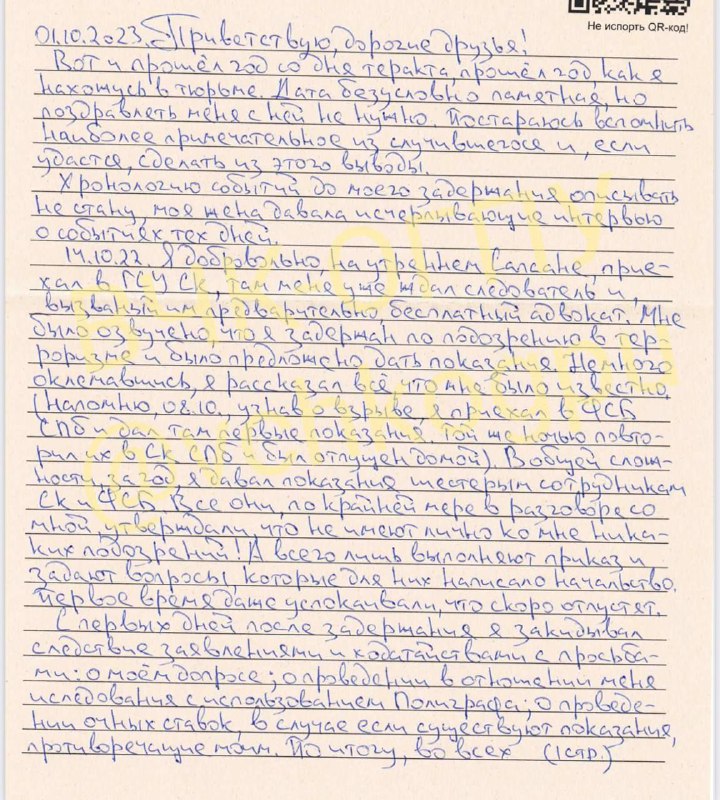 Не испорть QR-код!
01.10.2023. Приветствую, дорогие друзья!
Вот и прошёл год со дня теракта, прошёл год, как я
нахожусь в тюрьме. Дата безусловно памятная, но
поздравлять меня с ней не нужно. Постараюсь вспомнить
наиболее примечательное из случившегося и, если
удастся, сделать из этого выводы.
Хронологию событий до моего задержания описывать
не стану, моя жена давала исчерпывающие интервью
о событиях тех дней.
14.10.22. Я добровольно на утреннем Сапсане, прие-
хал в ГСУ СК, там меня уже ждал следователь и,
вызваный им предварительно, бесплатный адвокат. Мне
было озвучено, что я задержан по подозрению в тер-
роризме и было предложено дать показания. Немного
оклемавшись, я рассказал всё, что мне было известно.
(Напомню, 08.10., узнав о взрыве, я приехал в ФСБ
СПб и дал там первые показания. Той же ночью повто-
рил их в СК СПб и был отпущен домой). В общей слож-
ности, за год, я давал показания шестерым сотрудникам
СК и ФСБ. Все они, по крайней мере в разговоре со
мной, утверждали, что не имеют лично ко мне ника-
ких подозрений! А всего лишь выполняют приказ и
задают вопросы, которые для них написало начальство.
Первое время даже успокаивали, что скоро отпустят.
С первых дней после задержания я закидывал
следствие заявлениями и ходатайствами с просьба-
ми: о моём допросе; о проведении в отношении меня
исследования с использованием Полиграфа; о проведе-
нии очных ставок, в случае если существуют показания,
противоречащие моим. По итогу, во всех (1 стр.)